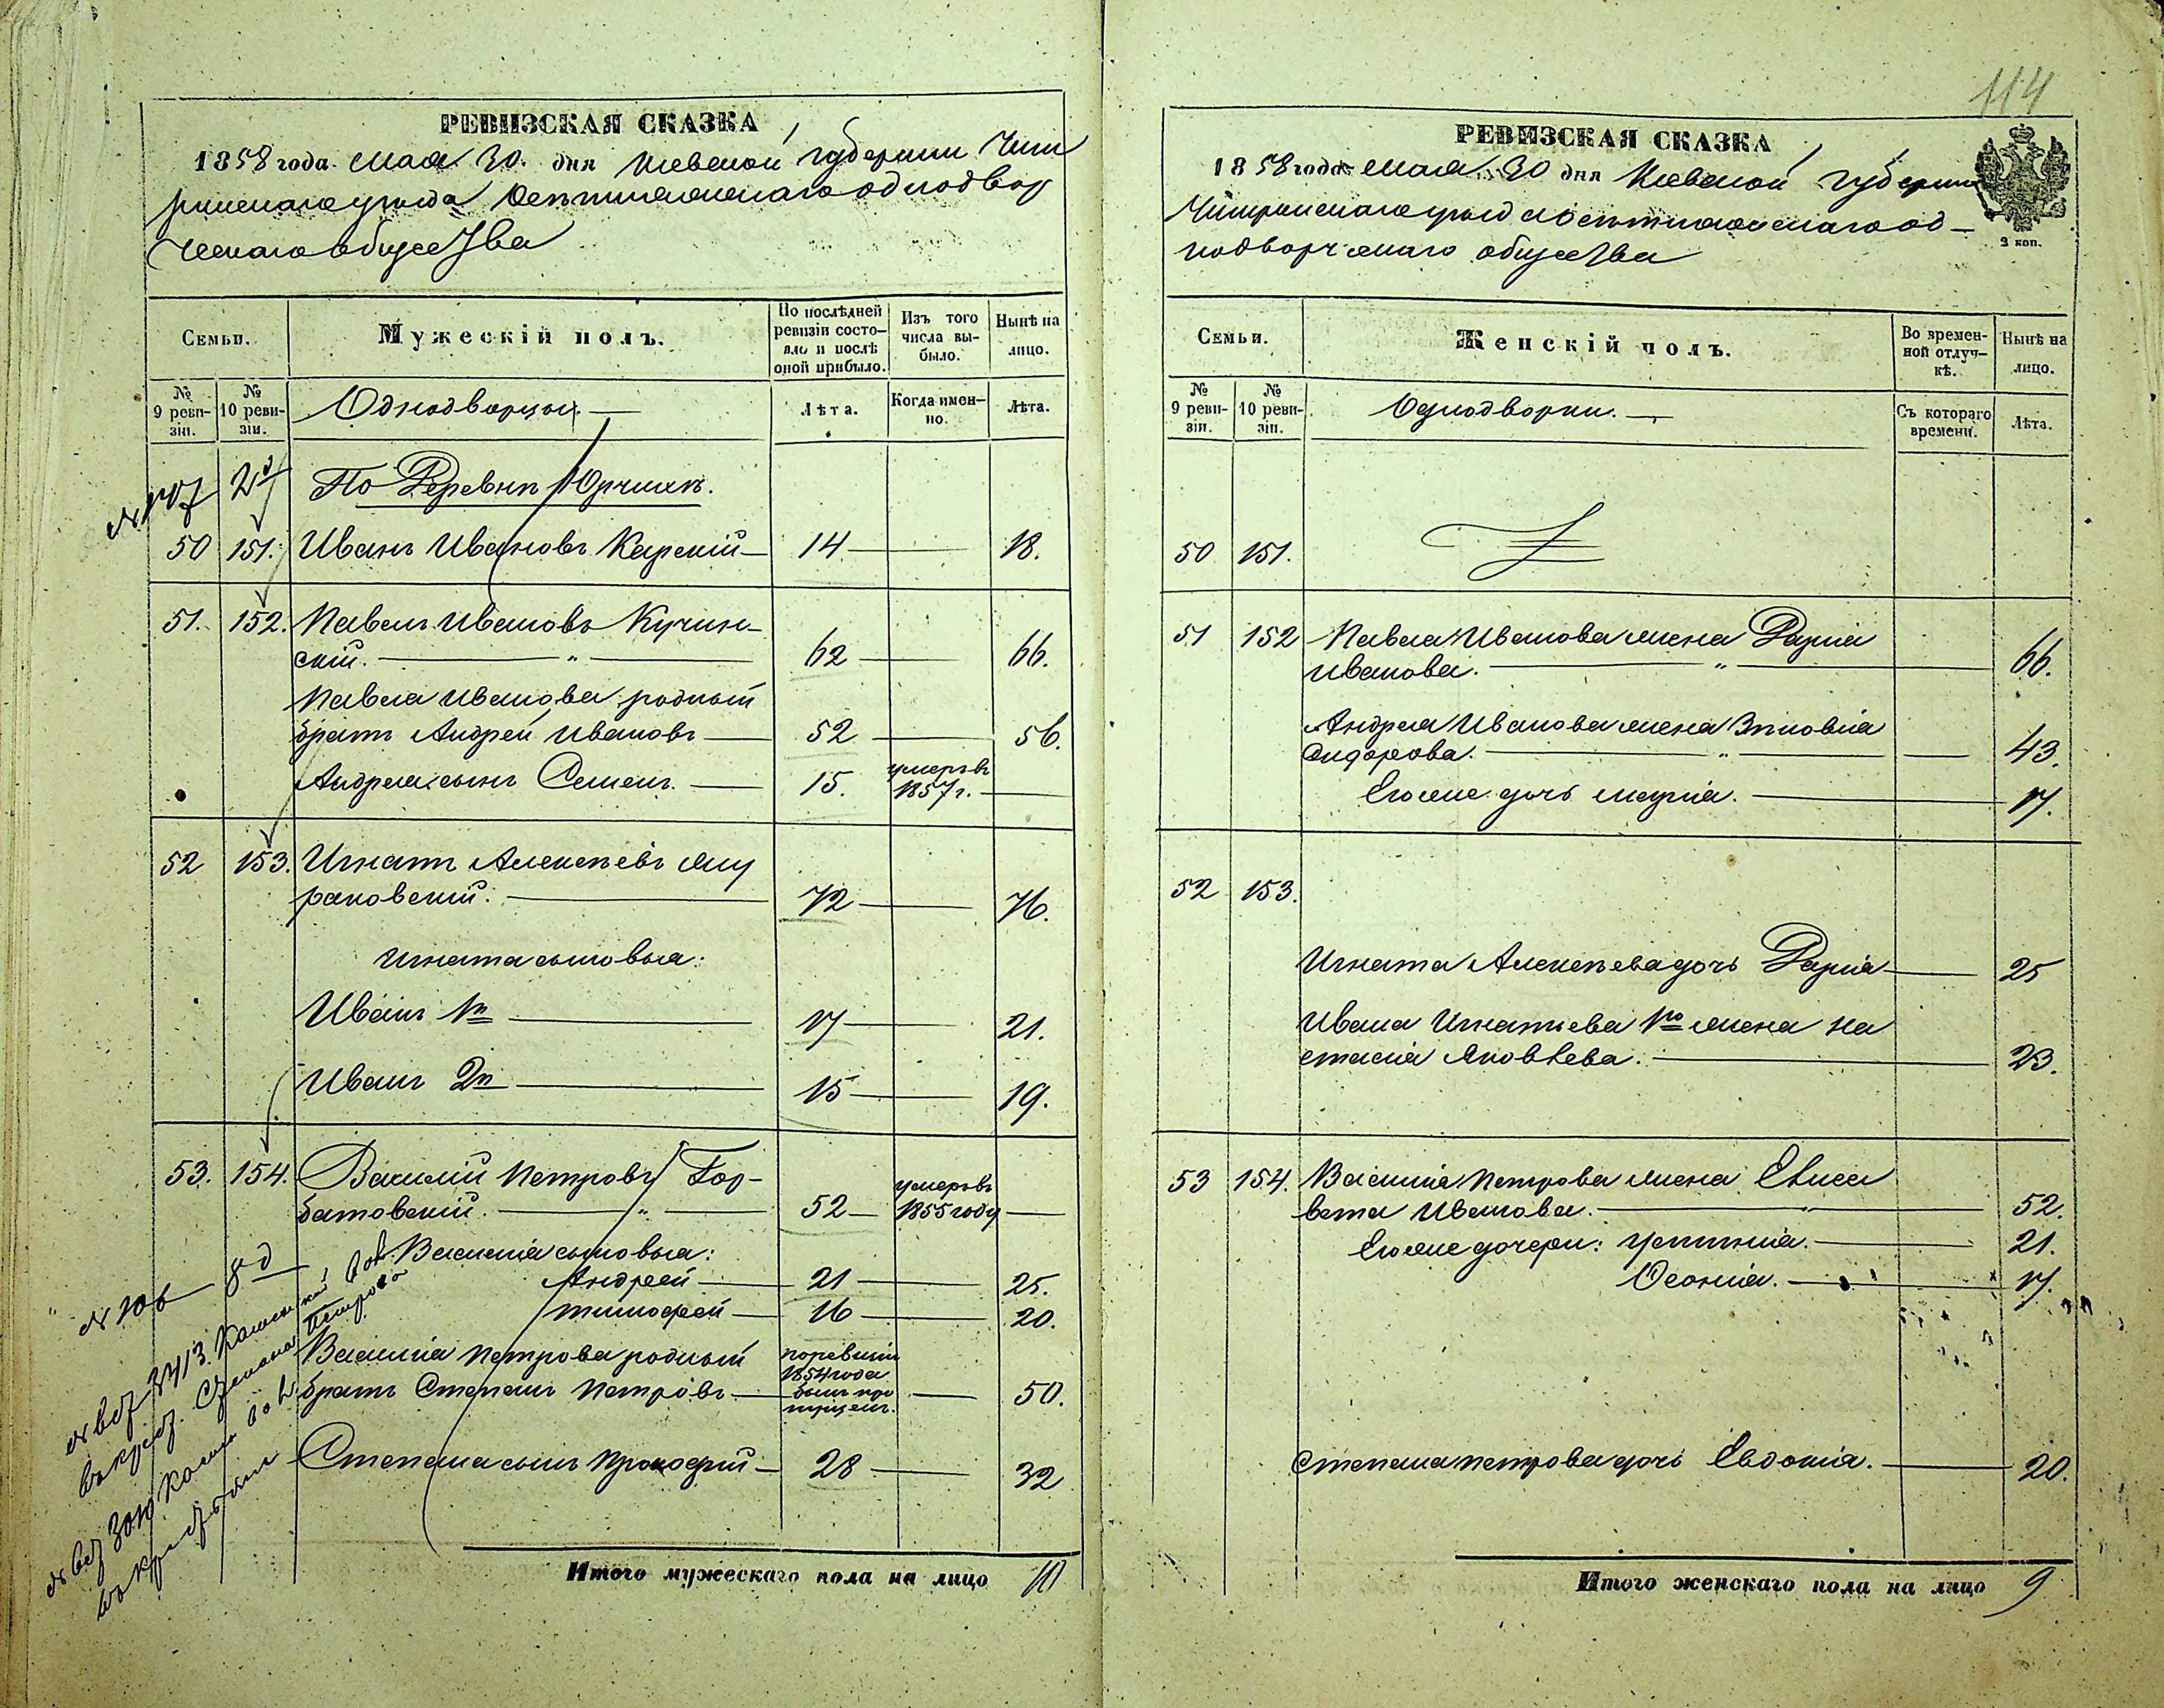 РЕВИЗСКАЯ СКАЗКА
1858 года Мая 30. дня Киевской губерніи Чиги
ринскаго уѣзда однодвор
ческаго общества
Семьи.
Мужескій полъ.
По послѣдней ревизіи состояло и послѣ оной прибыло.
Изъ того числа выбыло.
Нынѣ на лицо.
№ 9 ревизіи.
№ 10 ревизіи.
Однодворцы.
Лѣта.
Когда именно.
Лѣта.
По Деревнѣ Юрчихѣ.
50 151. Иванъ Ивановъ Карскій 14 18.
51. 152. Павелъ Ивановъ Кучин-
скій. 62 66.
Павла Иванова родный
братъ Андрей Ивановъ 52 56.
Андрея сынъ Семенъ. 15. умеръ въ 1857 г.
52 153. Игнатъ Алексѣевъ Му
раковскій. 72 76.
Игната сыновья:
Иванъ 1й 17 21.
Иванъ 2й 15 19.
53. 154. Василій Петровъ Гор-
батовскій. 52 умеръ въ 1855 году
Василія сыновья:
Андрей 21 25.
Тимофей 16 20.
Василія Петрова родный
братъ Степанъ Петровъ по ревизіи 1854 года былъ пропущенъ. 50.
Степана сынъ Прокофій 28 32
Итого мужескаго пола на лицо 10
114
РЕВИЗСКАЯ СКАЗКА
1858 года Мая 30 дня Киевской губерніи
Чигиринскаго уѣзда од-
нодворческаго общества
2 коп.
Семьи.
Женскій полъ.
Во временной отлучкѣ.
Нынѣ на лицо.
№ 9 ревизіи.
№ 10 ревизіи.
Однодворки.
Съ котораго времени.
Лѣта.
50 151.
51 152 Павла Иванова жена Дарія
Иванова. 66.
Андрея Иванова жена Зѣновія
Сидорова. 43.
Его же дочь Марія. 17.
52 153.
Игната Алексѣева дочь Дарія 25
Ивана Игнатьева 1го жена На
стасія Яковлева. 23.
53 154. Василія Петрова жена Елиса
вета Иванова. 52.
Его же дочери: Устинія. 21.
Ѳеонія. 17.
Степана Петрова дочь Евдокія. 20.
Итого женскаго пола на лицо 9